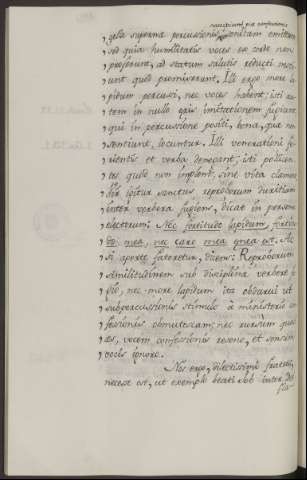 nascitiuni piæ confessionis
gela supremæ percussionis sonitum emittunt
sed quia humilitatis voces ex corde non
proferunt, ad statum salutis reducti nesci-
unt quod promiserunt. Illi ergo more la
pidum percussi, nec voces habent: isti au
tem in nullo æris imitationem fugiunt
qui in percussione positi, bona, quæ non
sentiunt, locuntur. Illi venerationi fe
rientis et verba denegant: isti pollicen
tes, quod non implent, sine vita clamant
Dicat igitur sanctus, reproborum duritiam
inter verbera fugiens, dicat in persona
electorum: Nec fortitudo lapidum, fortitu
do mea, nec caro mea ænea est. Ac
si aperte fateretur, dicens: Reproborum
similitudinem sub disciplinæ verbere fu
gio, nec more lapidum ita obdurui ut
sub percussionis stimulo à ministerio con
fessionis obmutescam; nec rursum quasi
æs, vocem confessionis resono, et sensum
vocis ignoro.
Nos ergo, dilectissimi fratres,
necesse est, ut exemplo beati Job inter Dei
fla-